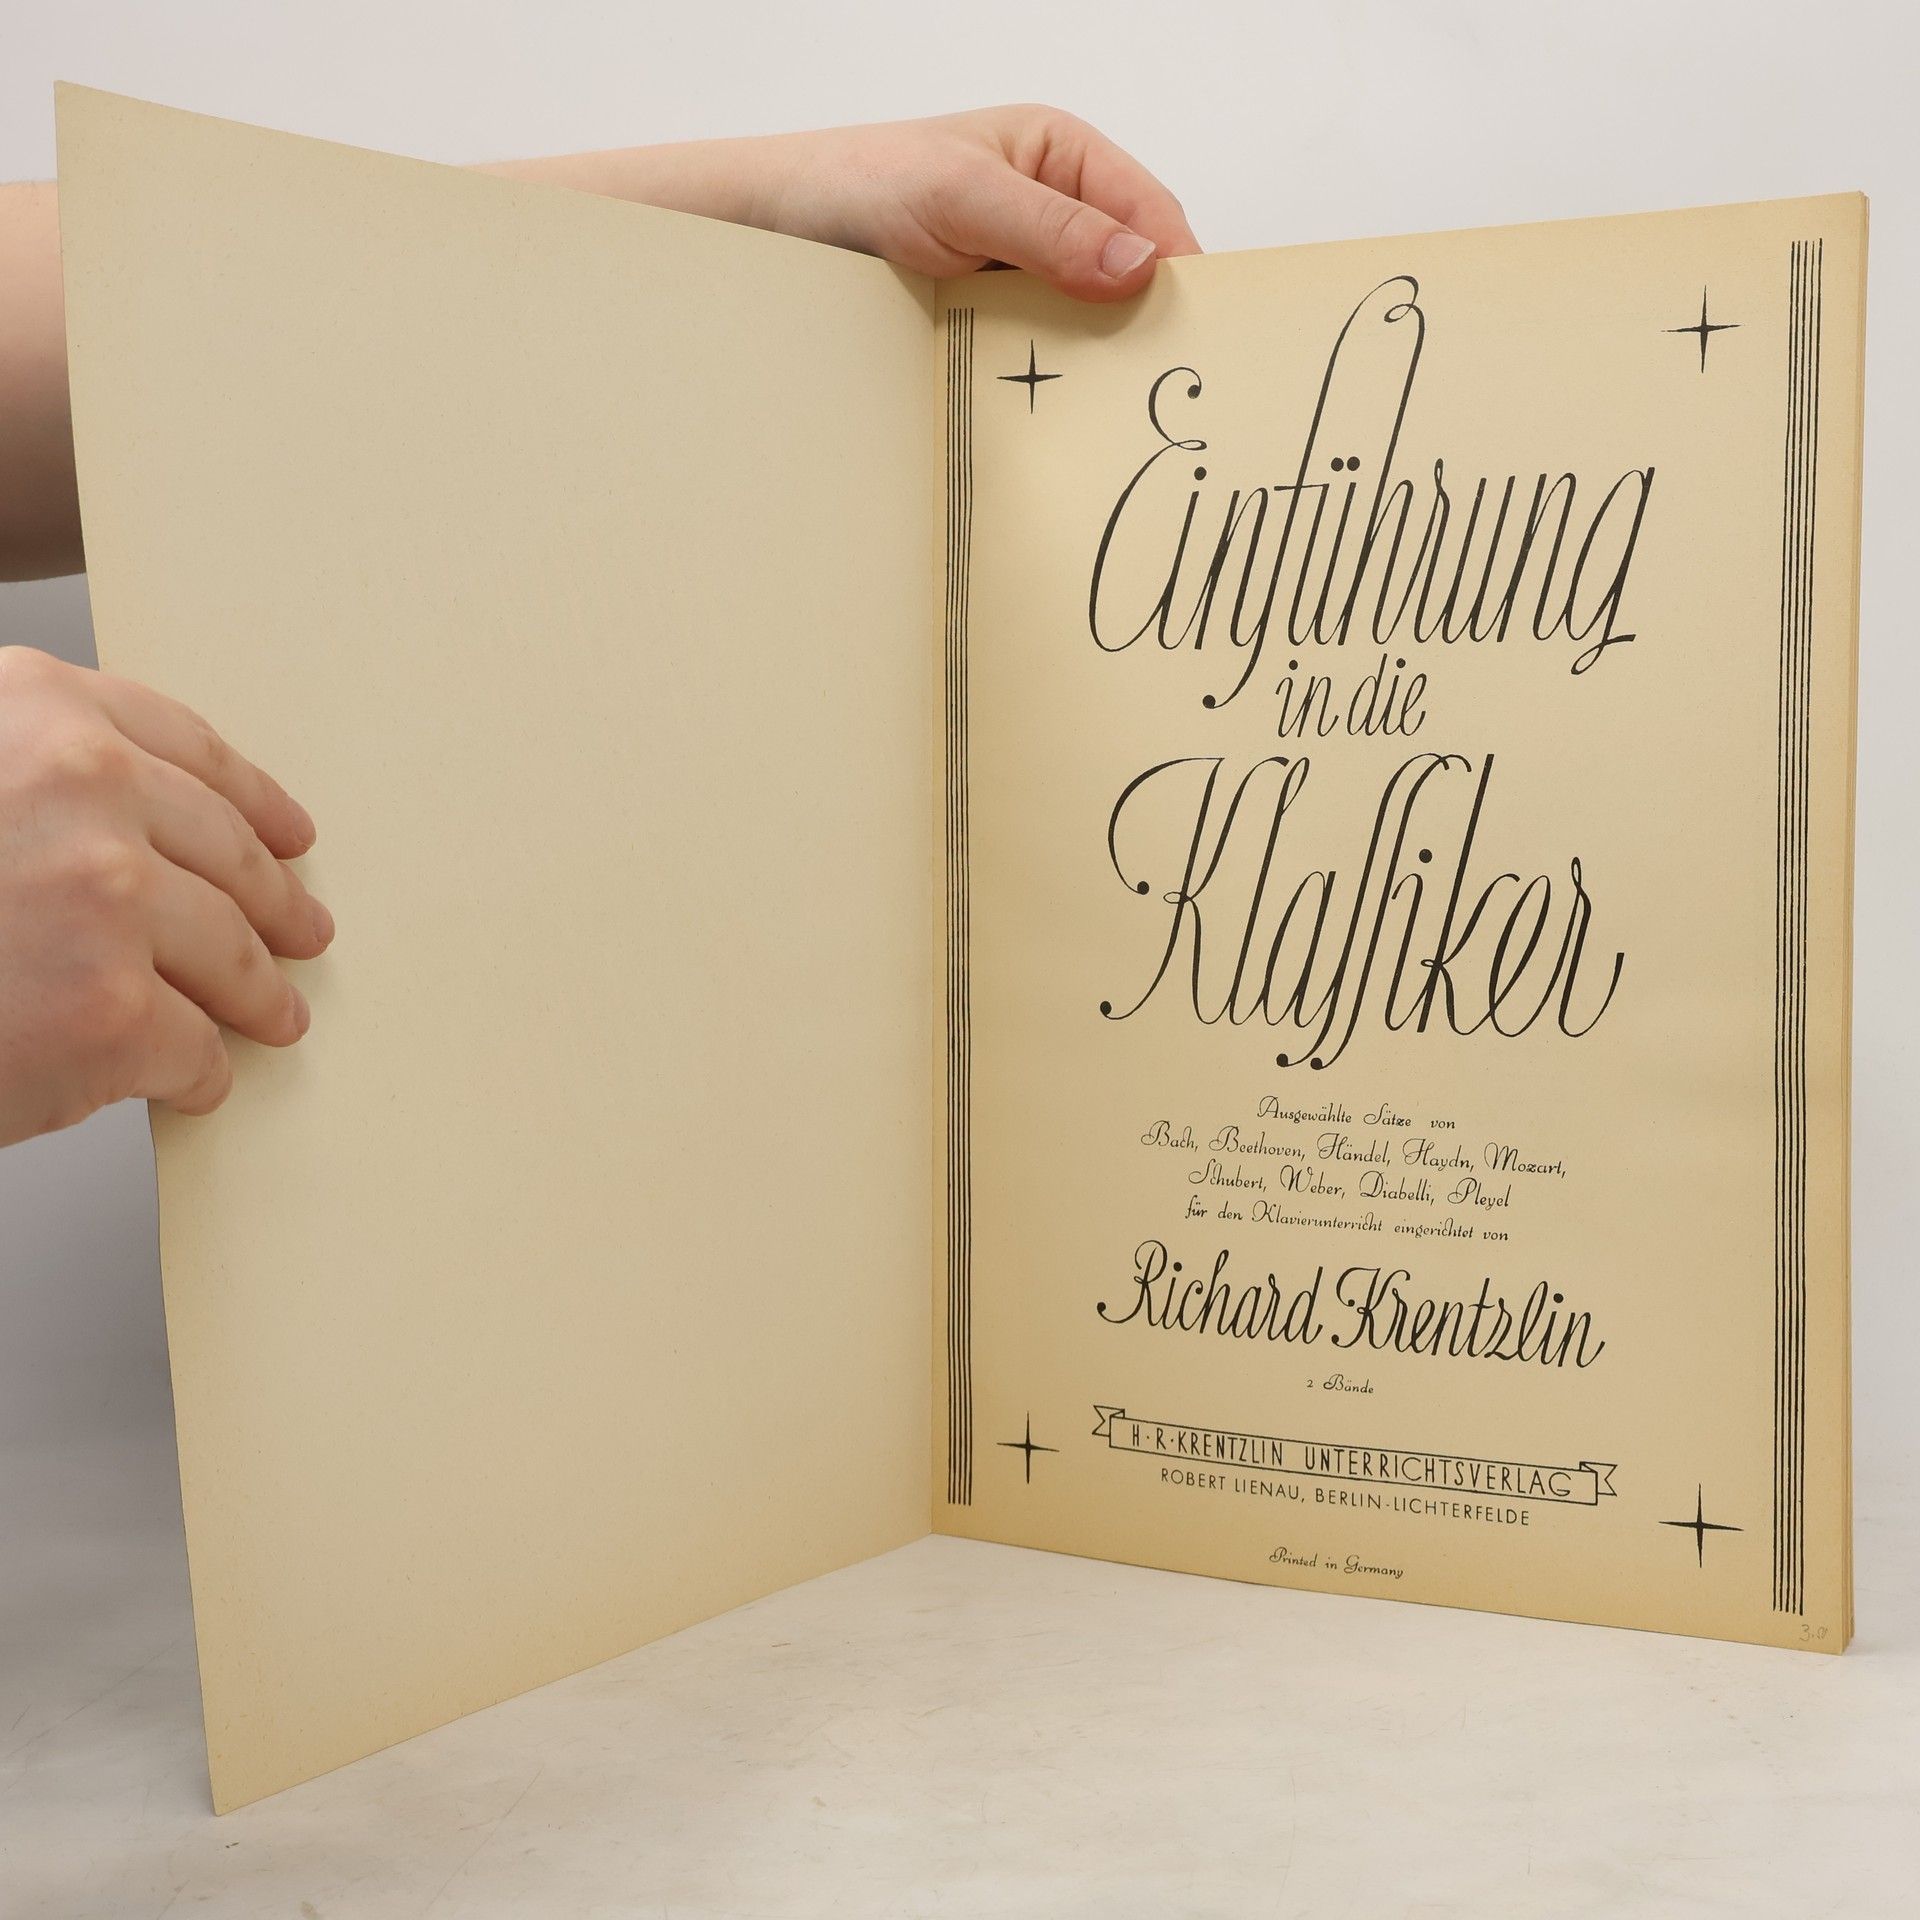 Einführung
in die
Klaſſiker
Ausgewählte Sätze von
Bach, Beethoven, Händel, Haydn, Mozart,
Schubert, Weber, Diabelli, Pleyel
für den Klavierunterricht eingerichtet von
Richard Krentzlin
2 Bände
H·R·KRENTZLIN UNTERRICHTSVERLAG
ROBERT LIENAU, BERLIN-LICHTERFELDE
Printed in Germany